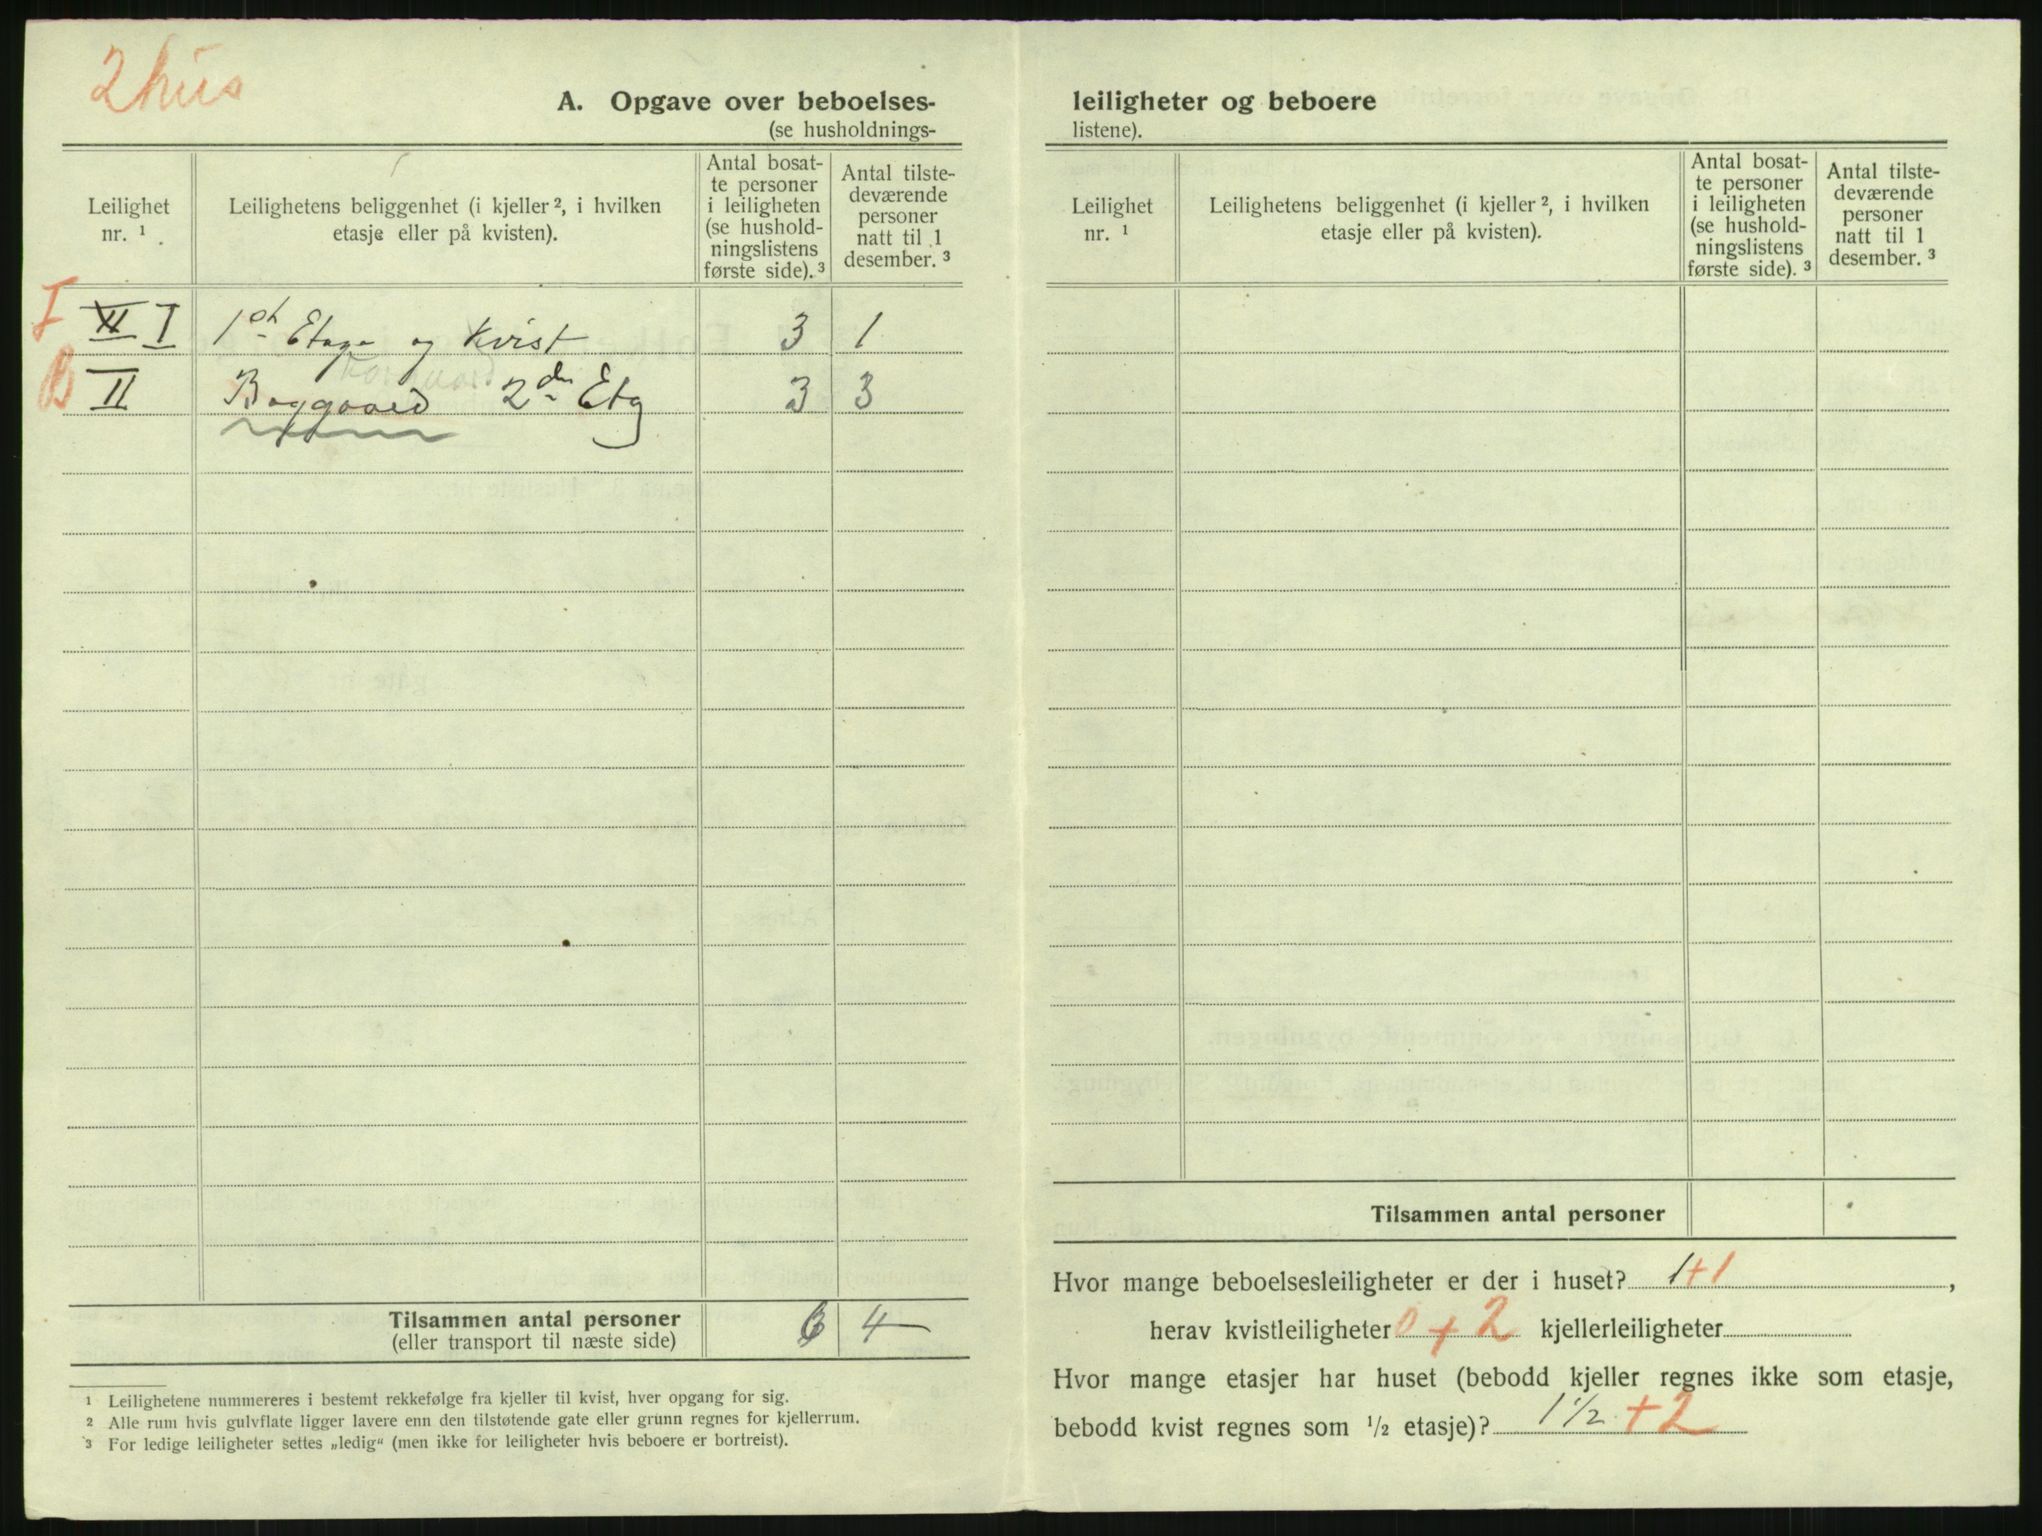 2 hus
A. Opgave over beboelses-
(se husholdnings-
Leilighet nr. ¹
Leilighetens beliggenhet (i kjeller ², i hvilken etasje eller på kvisten).
Antal bosat-
te personer
i leiligheten
(se hushold-
ningslistens
første side). ³
Antal tilste-
deværende
personer
natt til 1
desember. ³
I II I 1ste Etage og Kvist 3 1
B II Baggaard 2den Etg 3 3
Tilsammen antal personer 6 4
(eller transport til næste side)
¹ Leilighetene nummereres i bestemt rekkefølge fra kjeller til kvist, hver opgang for sig.
² Alle rum hvis gulvflate ligger lavere enn den tilstøtende gate eller grunn regnes for kjellerrum.
³ For ledige leiligheter settes „ledig“ (men ikke for leiligheter hvis beboere er bortreist).
leiligheter og beboere
listene).
Leilighet nr. ¹
Leilighetens beliggenhet (i kjeller ², i hvilken etasje eller på kvisten).
Antal bosat-
te personer
i leiligheten
(se hushold-
ningslistens
første side). ³
Antal tilste-
deværende
personer
natt til 1
desember. ³
Tilsammen antal personer
Hvor mange beboelsesleiligheter er der i huset? 1+1,
herav kvistleiligheter 0+2 kjellerleiligheter
Hvor mange etasjer har huset (bebodd kjeller regnes ikke som etasje,
bebodd kvist regnes som ½ etasje)? 1½ +2